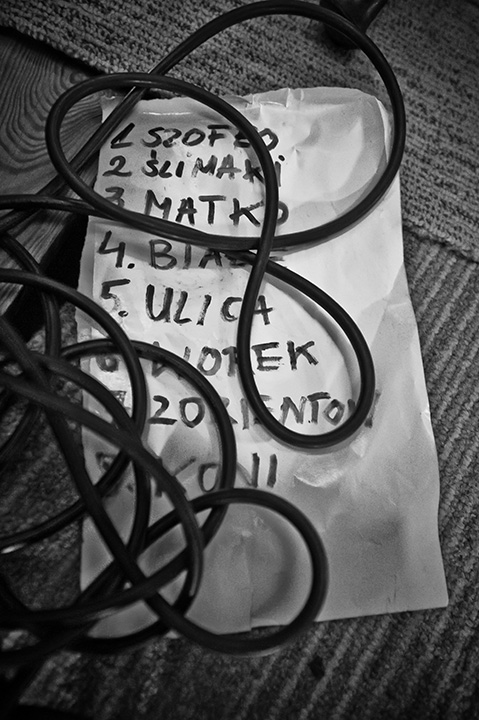 1 SZOFEO
2 ŚLIMAKI
3 MATKO
4. BIAŁE
5. ULICA
6. WOREK
ZORIENTOW
KONI